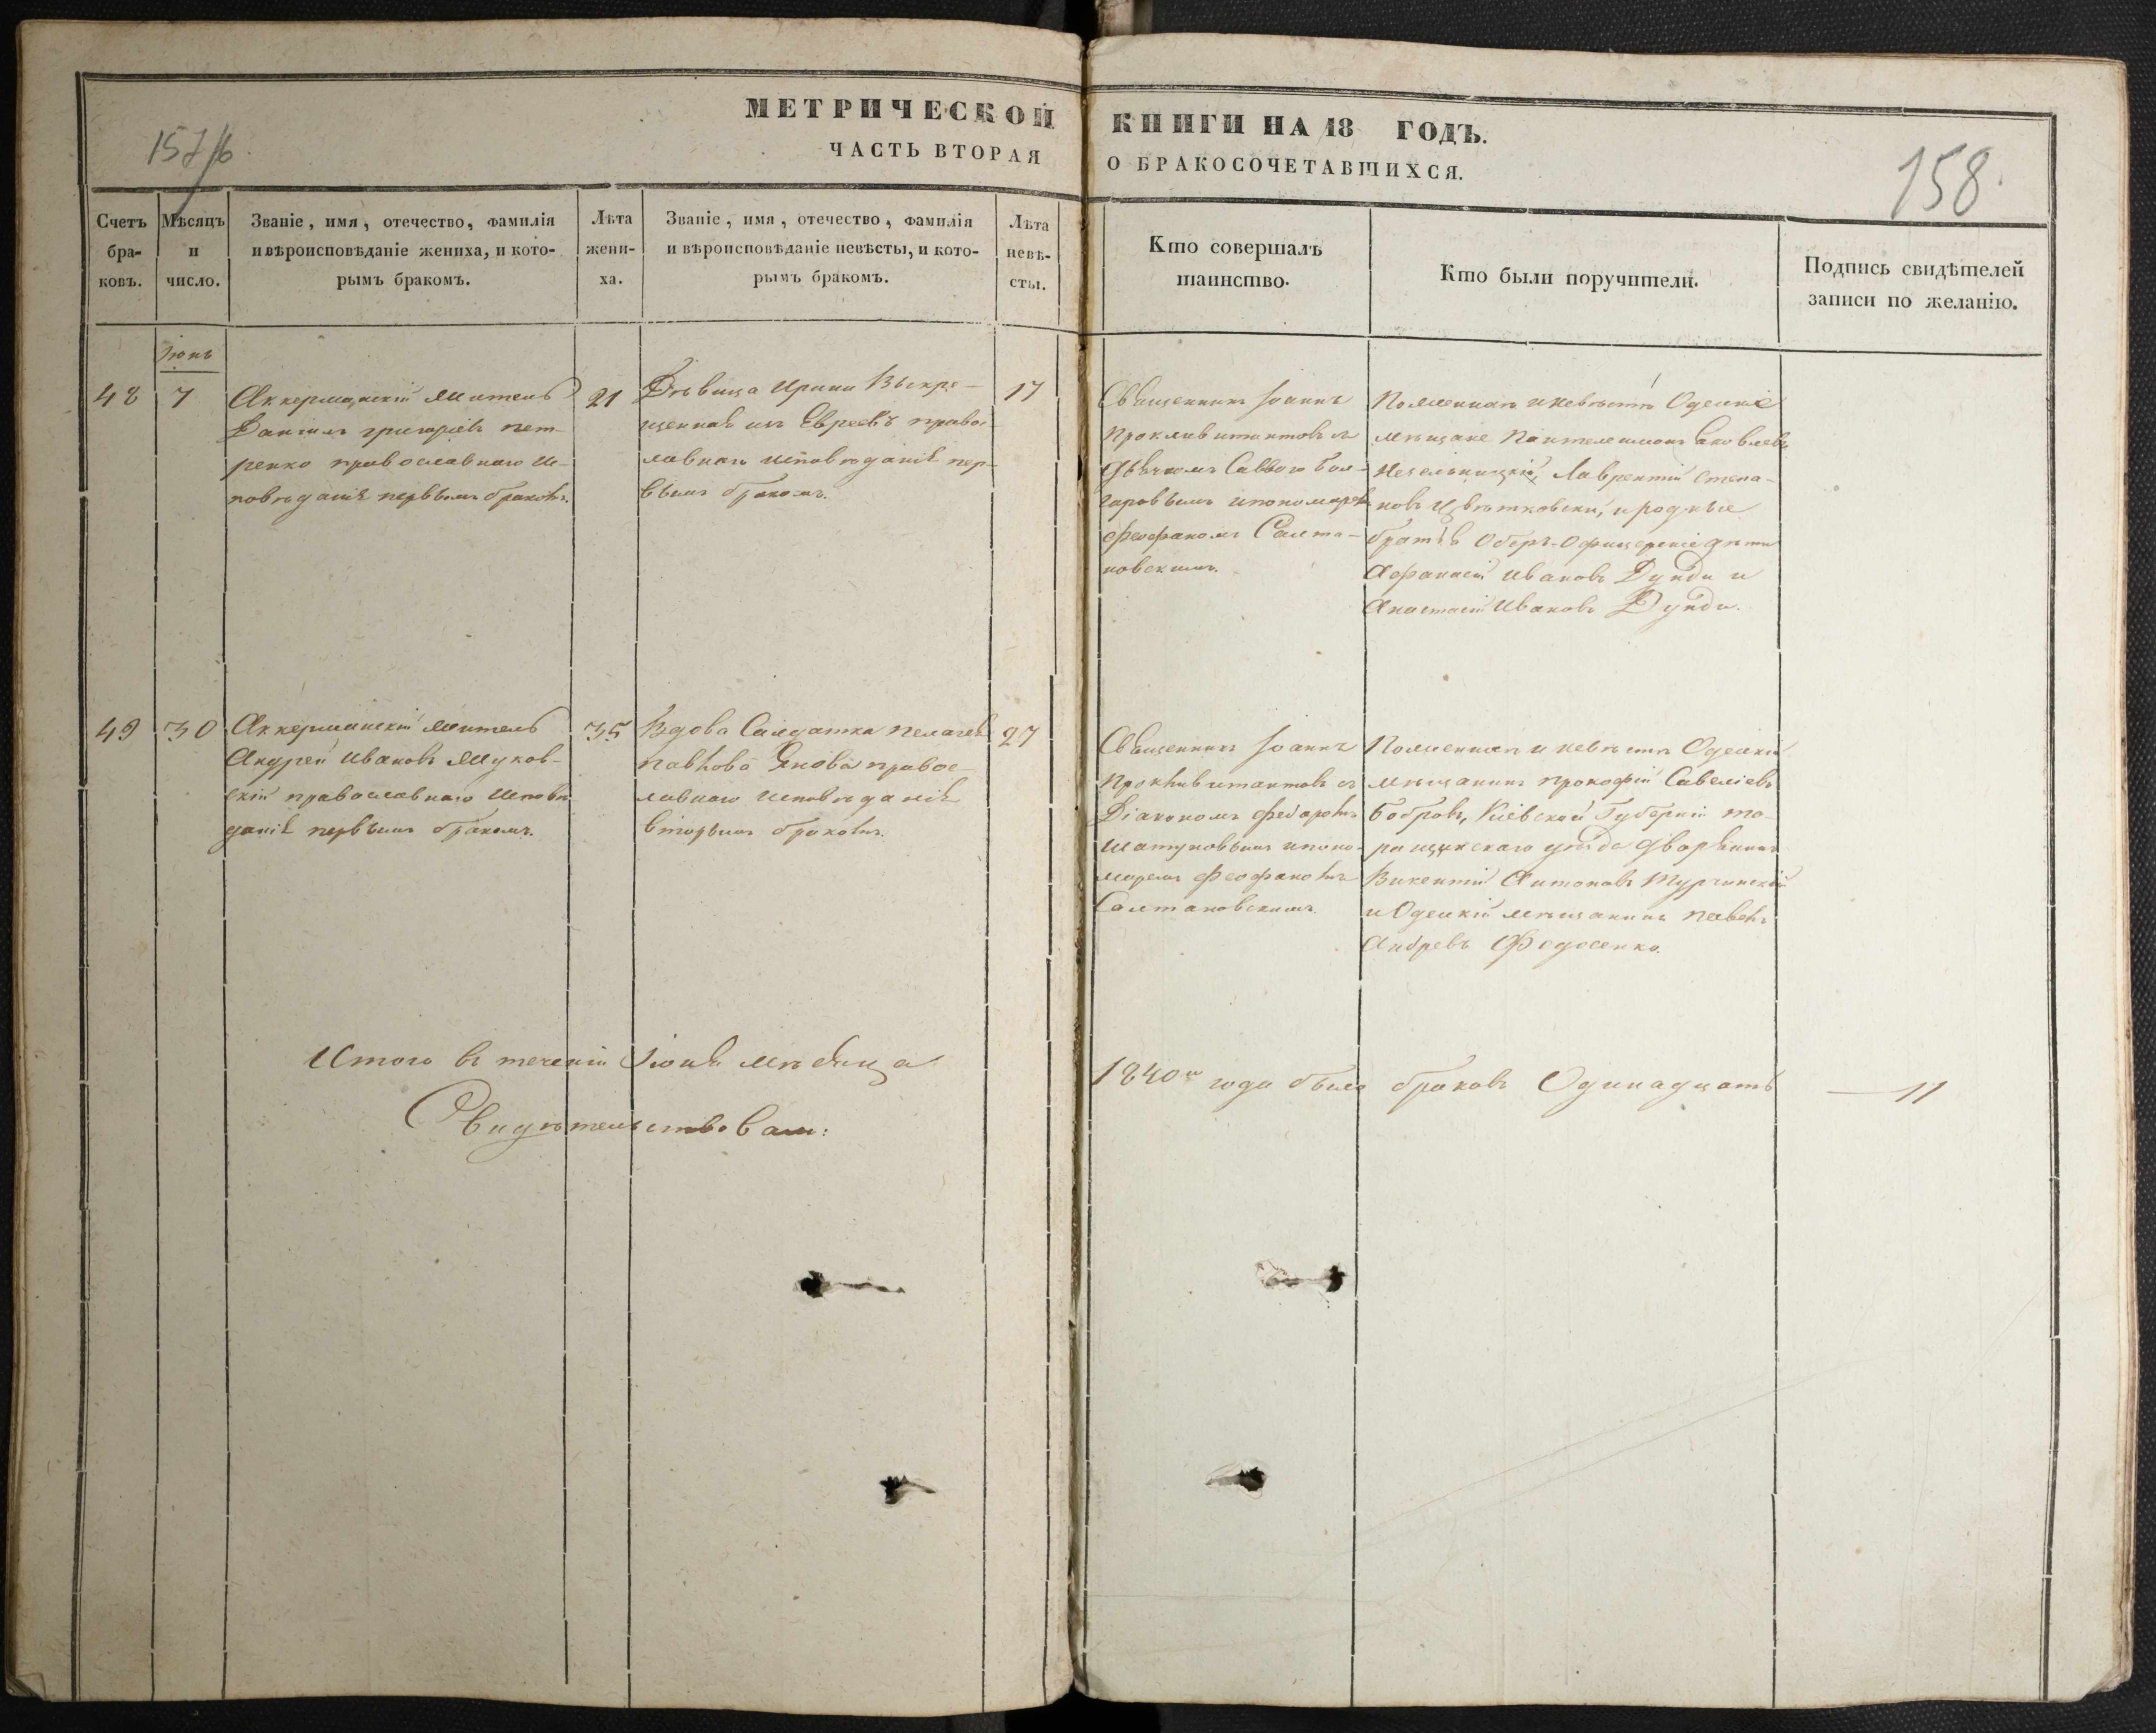 МЕТРИЧЕСКОЙ КНИГИ НА 18 ГОДЪ.
ЧАСТЬ ВТОРАЯ О БРАКОСОЧЕТАВШИХСЯ.
158.
Счетъ бра- ковъ.
Мѣсяцъ и число.
Званіе, имя, отечество, фамилія
и вѣроисповѣданіе жениха, и кото-
рымъ бракомъ.
Лѣта жени- ха.
Званіе, имя, отечество, фамилія
и вѣроисповѣданіе невѣсты, и кото-
рымъ бракомъ.
Лѣта невѣ- сты.
Кто совершалъ
таинство.
Кто были поручители.
Подпись свидѣтелей
записи по желанію.
Іюнь
48
7
Аккерманскій Житель
Даниилъ Григоріевъ Пет-
ренко православнаго Ис-
повѣданія первымъ бракомъ.
21
Дѣвица Ирина Выкре-
щенная изъ Евреевъ правос-
лавнаго Исповѣданія пер-
вымъ бракомъ.
17
Священникъ Іоаннъ
съ
Саввою Бол-
гаровымъ и пономаремъ
Феофаномъ Салта-
новскимъ.
По женихѣ и невѣстѣ Одескіе
мѣщане Пантелеимонъ Яковлевъ
Лаврентій Степа-
новъ Цвѣтковскій, и родные
братья Оберъ-Офицерскіе дѣти
Афанасій Ивановъ Дунди и
Анастасій Ивановъ Дунди.
49
30
Аккерманскій Житель
Андрей Ивановъ Жуков-
скій православнаго Исповѣ-
данія первымъ бракомъ.
35
Вдова Салдатка Пелагея
Павлова Янова правос-
лавнаго Исповѣданія
вторымъ бракомъ.
27
Священникъ Іоаннъ
съ
Діакономъ Федоромъ
Шатуновымъ и поно-
маремъ Феофаномъ
Салтановскимъ.
По женихѣ и невѣстѣ Одескій
мѣщанинъ Прокофій Савеліевъ
Бобровъ, Кіевской Губерніи Та-
ращанскаго уѣзда дворянинъ
Викентій Антоновъ
и Одескій мѣщанинъ Павелъ
Андреевъ Федосенко.
Итого въ теченіи Іюня мѣсяца 1840го года было браковъ Одинадцать — 11
Свидѣтельствовали: